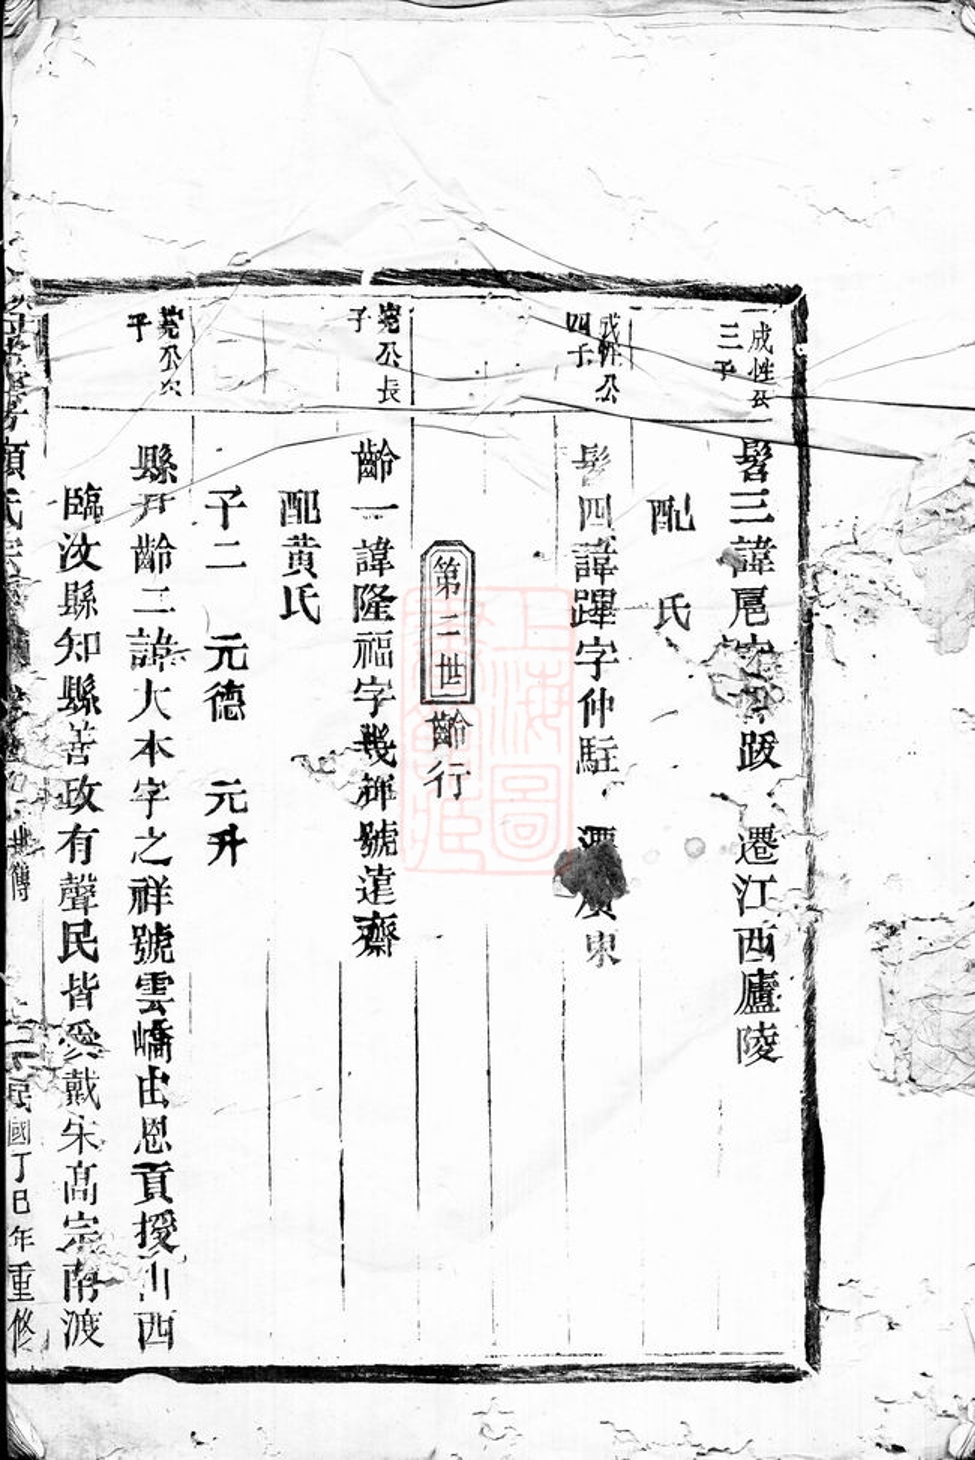 成性公
三子
髫三諱㞑字
跋 遷江西廬陵
配 氏
成性公
四子
髫四諱蹕字仲駐 遷廣東
第二世
齡行
公長
子
齡一諱隆福字幾祥號遠齋
配黄氏
子二 元德 元升
公次
子
齡二諱大本字之祥號雲嶠由恩貢授山西
縣尹
臨汝縣知縣善政有聲民皆愛戴宋高宗南渡
顔氏宗
世傳
民國丁巳年重修
上海圖